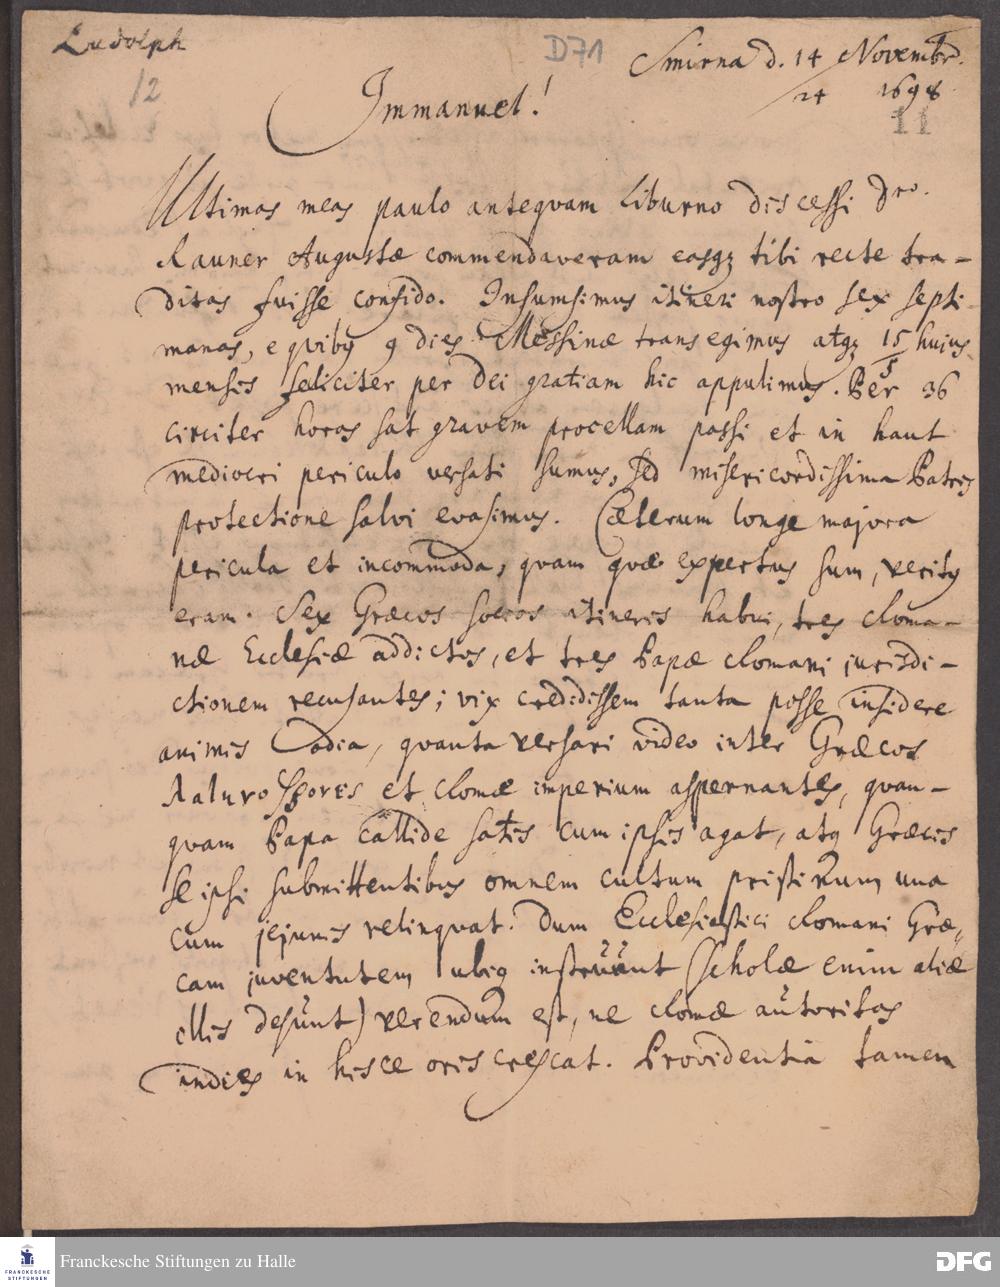 Ludolph
D71
Smirna d. 14 Novembr.
12
24 1698
Immanuel!
11
Ultimas meas paulo anteqvam Liburno discessi Dno.
Rauner Augustæ commendaveram easqz tibi recte tra-
ditas fuisse confido. Insumsimus itineri nostro sex septi-
manas, e qviby 9 dies Messinæ transegimus atqz 15/5 hujus
mensis feliciter per Dei gratiam hic appulimus. Per 36
circiter horas sat gravem procellam passi et in haut
mediocri periculo versati sumus, sed misericordissima Patris
protectione salvi evasimus. Cæterum longe majora
pericula et incommoda, quam quæ expertus sum, verity
eram. Sex Græcos socios itineris habui, tres Roma-
næ Ecclesiæ addictos, et tres Papæ Romani jurisdi-
ctionem recusantes; vix credidissem tanta posse insidere
animis odia, qvanta versari video inter Græcos
et Romæ imperium aspernantes, qvan-
qvam Papa callide satis cum ipsis agat, atq Græcis
se ipsi submittentibus omnem cultum pristinum una
cum jejuniis relinqvat. Dum Ecclesiastici Romani Græ-
cam juventutem ubiq instruunt (scholæ enim aliæ
illis desunt) verendum est, ne Romæ autoritas
indies in hisce oris crescat. Providentia tamen
FRANCKESCHE
STIFTUNGEN
Franckesche Stiftungen zu Halle
DFG